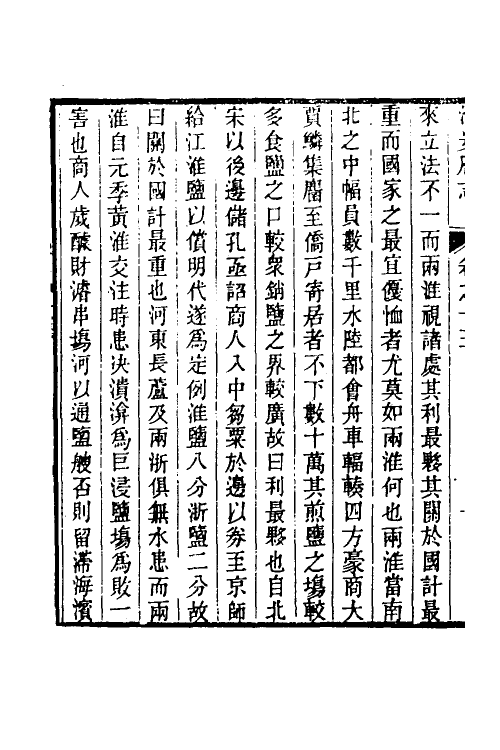 來立法不一而兩淮視諸處其利最夥其關於國計最
重而國家之最宜優恤者尤莫如兩淮何也兩淮當南
北之中幅員數千里水陸都會舟車輻輳四方豪商大
賈鱗集麕至僑戸寄居者不下數十萬其煎鹽之塲較
多食鹽之口較衆銷鹽之界較廣故曰利最夥也自北
宋以後邊儲孔亟詔商人入中芻粟於邊以券至京師
給江淮鹽以償明代遂爲定例淮鹽八分浙鹽二分故
曰關於國計最重也河東長蘆及兩浙俱無水患而兩
淮自元季黃淮交注時患决潰滸爲巨浸鹽塲爲敗一
害也商人歲醵財濬串塲河以通鹽艘否則留滯海濱